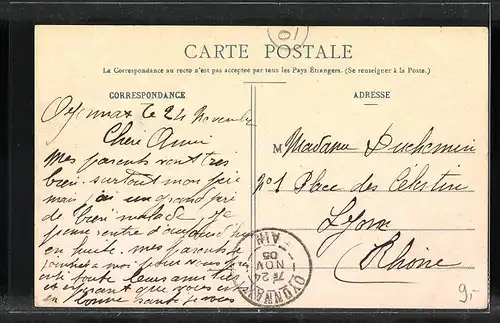 10
CARTE POSTALE
La Correspondance au recto n'est pas acceptée par tous les Pays Étrangers. (Se renseigner à la Poste.)
CORRESPONDANCE
Oyonnax le 24 Novembre
Chère Amie
Mes parents vont très
bien surtout mon père
mais j'ai un grand père
de bien malade, je
en suite. mes parents se
à moi pour vous
toute leurs amitiés
en vous
en bonne santé je vous
ADRESSE
M Madame Duchemin
n° 1 Place des Célestin
Lyon
Rhône
OYONNAX
AIN
24
NOV
05
9,-